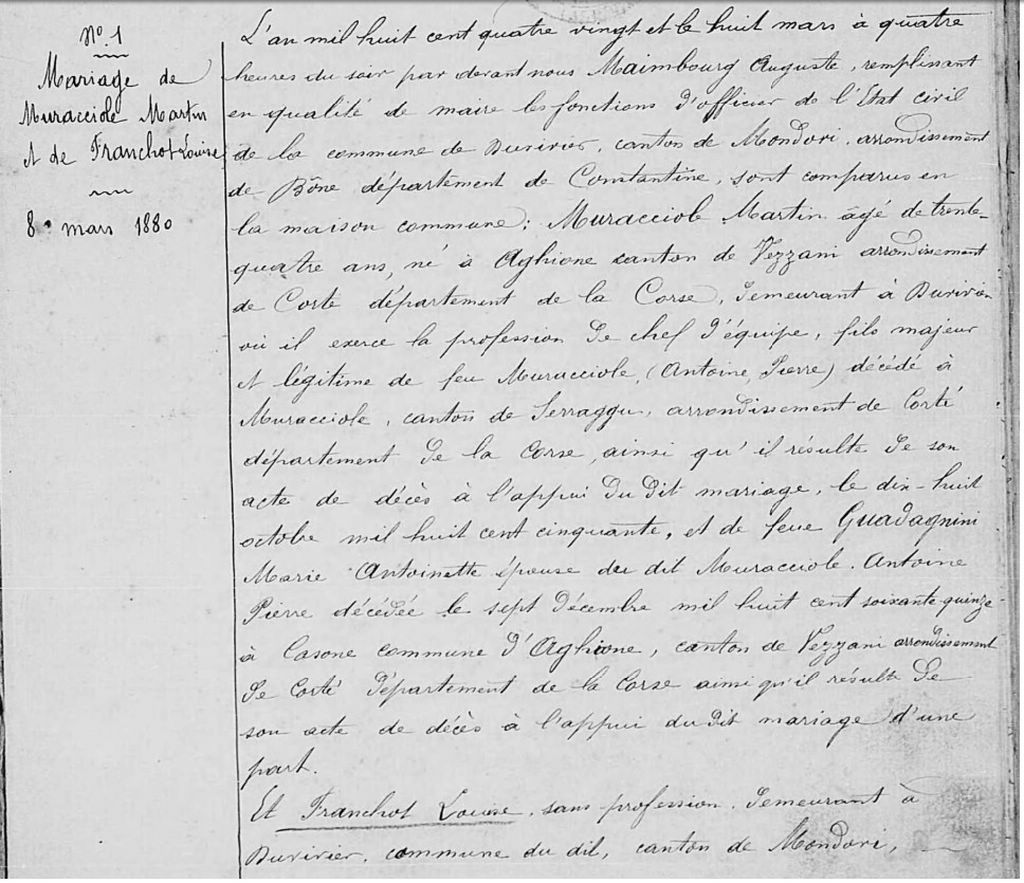 N° 1
Mariage de
Muracciole Martin
et de Franchot Louise
8 mars 1880
L'an mil huit cent quatre vingt et le huit mars à quatre
heures du soir par devant nous Maimbourg Auguste, remplissant
en qualité de maire les fonctions d'officier de l'Etat civil
de la commune de Duvivier, canton de Mondovi, arrondissement
de Bône département de Constantine, sont comparus en
la maison commune: Muracciole Martin âgé de trente-
quatre ans, né à Aghione canton de Vezzani arrondissement
de Corte département de la Corse, demeurant à Duvivier
où il exerce la profession de chef d'équipe, fils majeur
et légitime de feu Muracciole, (Antoine, Pierre) décédé à
Muracciole, canton de Serraggu, arrondissement de Corté
département de la Corse, ainsi qu'il résulte de son
acte de décès à l'appui du dit mariage, le dix-huit
octobre mil huit cent cinquante, et de feue Guadagnini
Marie Antoinette épouse du dit Muracciole. Antoine
Pierre décédée le sept décembre mil huit cent soixante-quinze
à Casone commune d'Aghione, canton de Vezzani arrondissement
de Corté département de la Corse ainsi qu'il résulte de
son acte de décès à l'appui du dit mariage d'une
part.
Et Franchot Louise, sans profession, demeurant à
Duvivier, commune du dit, canton de Mondovi,